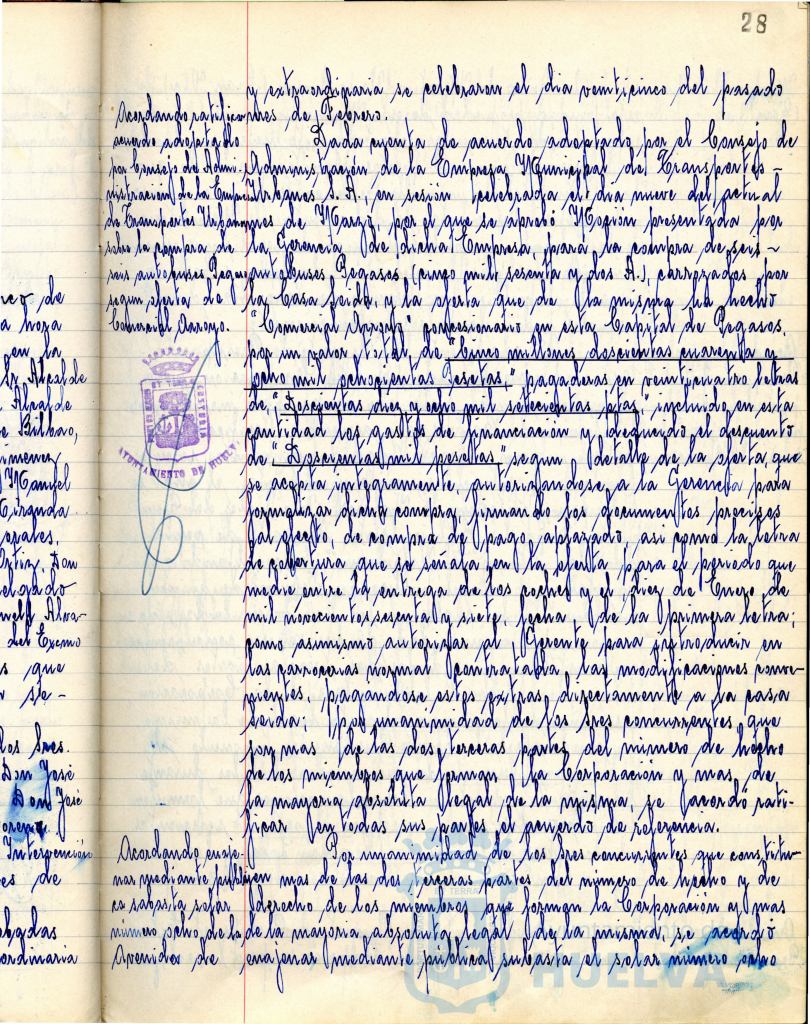 28
y extraordinaria se celebraron el dia veinticinco del pasado
mes de Febrero.
Dada cuenta de acuerdo adoptado por el Consejo de
Administración de la Empresa Municipal de Transportes
Urbanos S. A., en sesión celebrada el dia nueve del actual
mes de Marzo, por el que se aprobó Moción presentada por
la Gerencia de dicha Empresa, para la compra de seis
autobuses Pegasos, (cinco mil sesenta y dos A.), carrozados por
la Casa Seida, y la oferta que de la misma ha hecho
"Comercial Arroyo" concesionario en esta Capital de Pegasos,
por un valor total de "Cinco millones doscientas cuarenta y
ocho mil ochocientas Pesetas," pagaderas en veinticuatro letras
de, "Doscientas diez y ocho mil setecientas ptas", incluido en esta
cantidad los gastos de financiación y deducido el descuento
de "Doscientas mil pesetas" segun detalle de la oferta, que
se acepta integramente, autorizandose a la Gerencia para
formalizar dicha compra, firmando los documentos precisos
al efecto, de compra de pago aplazado, asi como la letra
de cobertura que se señala en la oferta para el periodo que
medie entre la entrega de los coches y el diez de Enero de
mil novecientos sesenta y siete, fecha de la primera letra;
como asimismo autorizar al Gerente para introducir en
las carrocerias normal contratada, las modificaciones conve-
nientes, pagandose estos extras directamente a la casa
Seida; por unanimidad de los Sres concurrentes que
son mas de las dos terceras partes del número de hecho
de los miembros que forman la Corporación y mas de
la mayoria absoluta legal de la misma, se acordó rati-
ficar en todas sus partes el acuerdo de referencia.
Por unanimidad de los Sres concurrentes que constitu-
yen mas de las dos terceras partes del número de hecho y de
derecho de los miembros que forman la Corporación y mas
de la mayoria absoluta legal de la misma, se acordó
enajenar mediante pública subasta el solar número ocho
Acordando ratificar
acuerdo adoptado
por Consejo de Admi-
nistración de la Empresa
de Transportes Urbanos
sobre la compra de
seis autobuses Pegaso
segun oferta de
Comercial Arroyo.
AYUNTAMIENTO DE HUELVA
Acordando enaje-
nar, mediante públi-
ca subasta, solar
número ocho, de la
Avenida de
rco de
a hora
en la
Sr. Alcalde
Alcalde
Bilbao,
imenez
Manuel
Miranda
orales,
Ortiz, Don
elgado
Alva-
del Excmo
s que
se-
los Sres.
Don José
Don José
Intervención
es de
obadas
ordinaria
HUELVA